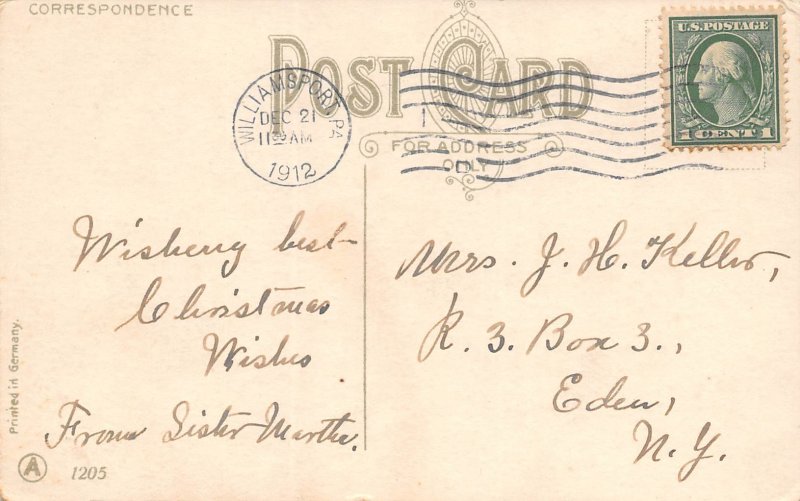 CORRESPONDENCE
POST CARD
FOR ADDRESS
ONLY
WILLIAMSPORT, PA
DEC 21
11 AM
1912
U.S. POSTAGE
1 CENT 1
Wisheng best
Christmas
Wishes
From Sister Martha.
Mrs. J. H. Keller,
R. 3. Box 3.,
Eden,
N.Y.
Printed in Germany.
A 1205